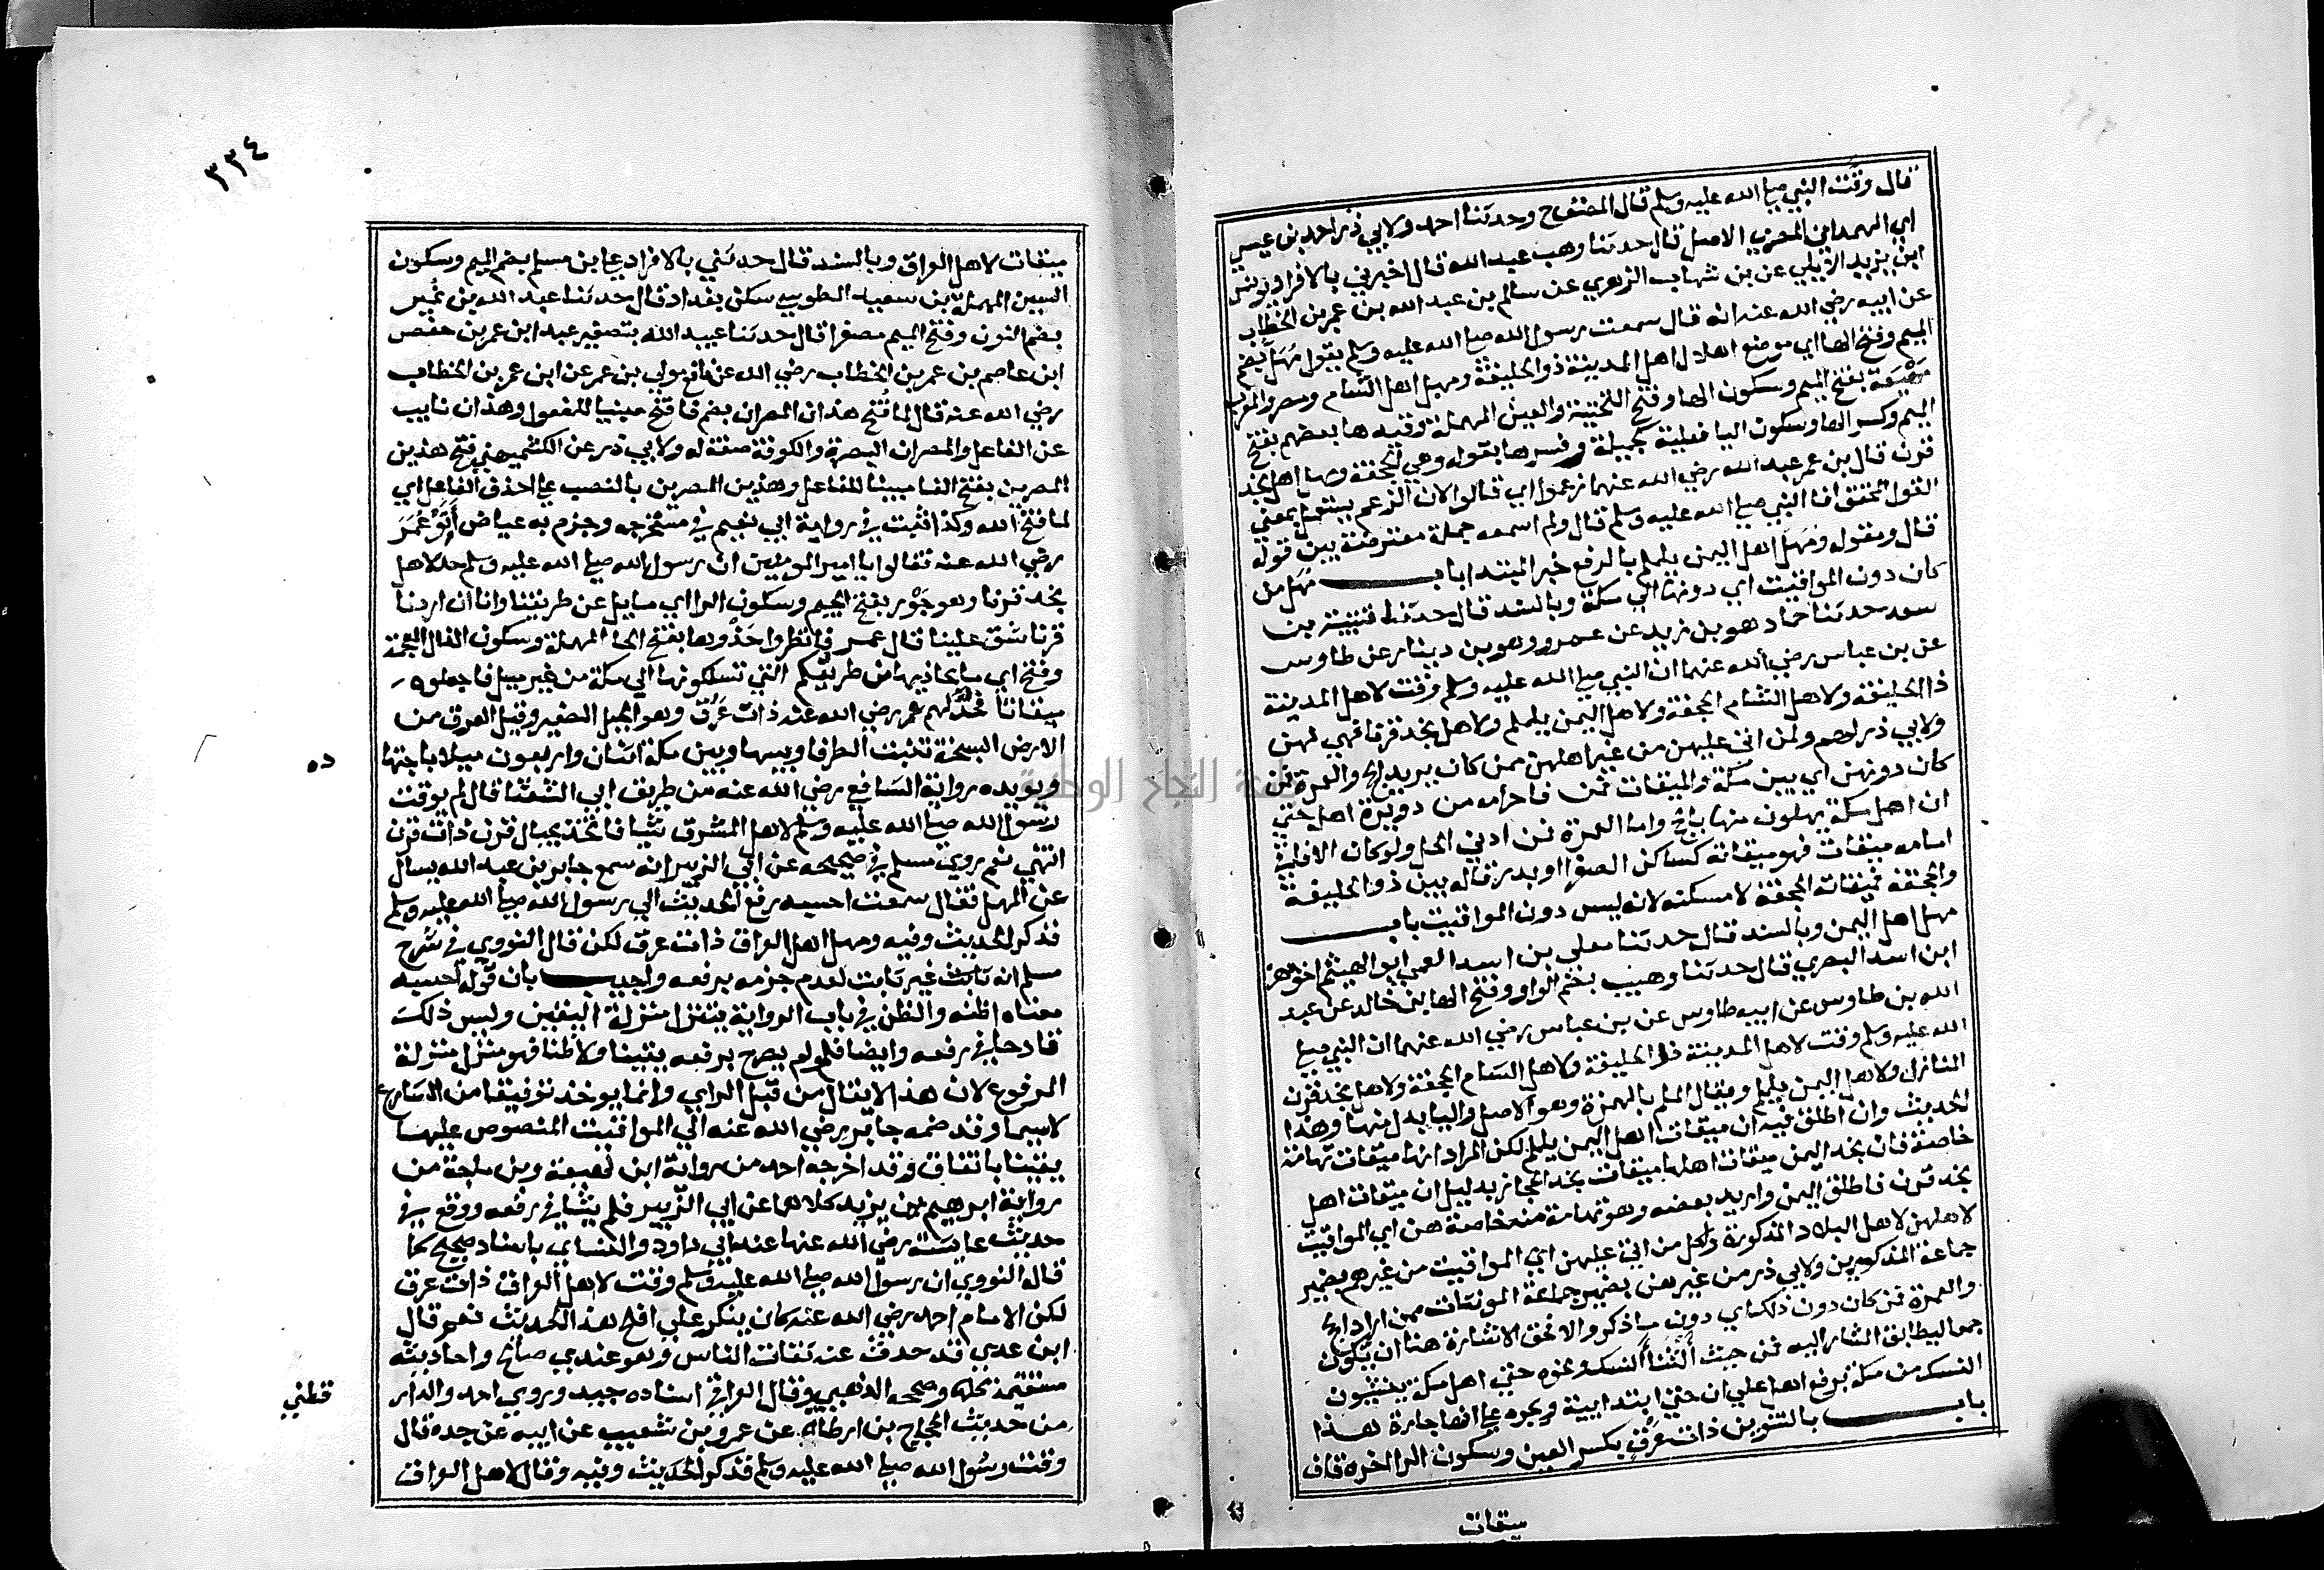 قال وقت النبي صلي الله عليه وسلم قال المصنف ح وحدثنا احمد ولابي ذر احمد بن عيسي
اي الهمداني المصري الاصل قال حدثنا وهب عبد الله قال اخبرني بالافراد يونس
ابن يزيد الايلي عن بن شهاب الزهري عن سالم بن عبد الله بن عمر بن الخطاب
عن ابيه رضي الله عنه انه قال سمعت رسول الله صلي الله عليه وسلم يقول مُهَلّ بضم
الميم وفتح الها اي موضع اهلال اهل المدينة ذو الحليفة ومهل اهل الشام ومصر والمغرب
مَهْيَعة بفتح الميم وسكون الها وفتح التحتية والعين المهملة وقيدها بعضهم بفتح
الميم وكسر الها وسكون اليا فعلية كجميلة وفسرها بقوله وهي الجحفة ومهل اهل نجد
قرن قال بن عمر عبد الله رضي الله عنهما زعموا اي قالوا لان الزعم يستعمل بمعني
القول المحقق ان النبي صلي الله عليه وسلم قال ولم اسمعه جملة معترضة بين قوله
قال ومقوله ومُهَلّ اهل اليمن يلملم بالرفع خبر المبتدا باب مهل من
كان دون المواقيت اي دونها الي مكة وبالسند قال حدثنا قتيبة بن
سعد حدثنا حماد هو بن زيد عن عمرو وهو بن دينار عن طاوس
عن بن عباس رضي الله عنهما ان النبي صلي الله عليه وسلم وقت لاهل المدينة
ذا الحليفة ولاهل الشام الجحفة ولاهل اليمن يلملم ولاهل نجد قرنا فهي لهن
ولابي ذر لهم ولمن اتي عليهن من غير اهلهن ممن كان يريد الحج والعمرة فمن
كان دونهن اي بين مكة والميقات فمن فاحرامه من دويرة اهله حتي
ان اهل مكة يهلون منها بالحج واما العمرة فمن ادني الحل ولو كان الافاقي
امامه ميقات فهو ميقاته كساكن الصفرا او بدر فانه بين ذو الحليفة
والجحفة فميقاته الجحفة لا مسكنه لانه ليس دون المواقيت باب
مهل اهل اليمن وبالسند قال حدثنا معلي بن اسد العمي ابو الهيثم اخو بهز
ابن اسد البصري قال حدثنا وهيب بضم الواو وفتح الها بن خالد عن عبد
الله بن طاوس عن ابيه طاوس عن بن عباس رضي الله عنهما ان النبي صلي
الله عليه وسلم وقت لاهل المدينة ذا الحليفة ولاهل الشام الجحفة ولاهل نجد قرن
المنازل ولاهل اليمن يلملم ويقال الملم بالهمزة وهو الاصل واليا بدل منها وهذا
الحديث وان اطلق فيه ان ميقات اهل اليمن يلملم لكن المراد انها ميقات تهامة
خاصة فان نجد اليمن ميقات اهلها ميقات نجد الحجاز بدليل ان ميقات اهل
نجد قرن فاطلق اليمن واريد بعضه وهو تهامة منه خاصة هن اي المواقيت
لاهلهن لاهل البلاد المذكورة ولكل من اتي عليهن اي المواقيت من غيرهم بضمير
جماعة المذكورين ولابي ذر من غيرهن بضمير جماعة المونثات ممن اراد الحج
والعمرة فمن كان دون ذلك اي دون ما ذكر والا فحق الاشارة هنا ان يكون
جمعا ليطابق المشار اليه فمن حيث انشا النسك ونحوه حتي اهل مكة ينشيون
النسك من مكة برفع اهل علي ان حتي ابتدايية وبجره علي انها جارة لهذا
باب بالتنوين ذات عرق بكسر العين وسكون الرا اخره قاف
ميقات
٣٣٤
ميقات لاهل العراق وبالسند قال حدثني بالافراد علي بن مسلم بضم الميم وسكون
السين المهملة بن سعيد الطوسي سكن بغداد قال حدثنا عبد الله بن نمير
بضم النون وفتح الميم مصغرا قال حدثنا عبيد الله بتصغير عبد ابن عمر بن حفص
ابن عاصم بن عمر بن الخطاب رضي الله عن نافع مولي بن عمر عن ابن عمر بن الخطاب
رضي الله عنه قال لما فُتح هذان المصران بضم فا فتح مبنيا للمفعول وهذان نايب
عن الفاعل والمصران البصرة والكوفة صفة له ولابي ذر عن الكشميهني فتح هذين
المصرين بفتح الفا مبنيا للفاعل وهذين المصرين بالنصب علي حذف الفاعل اي
لما فتح الله وكذا ثبت في رواية ابي نعيم في مستخرجه وجزم به عياض أَتَوْ عُمَرَ
رضي الله عنه فقالوا يا امير المومنين ان رسول الله صلي الله عليه وسلم حد لاهل
نجد قرنا وهو جَوْر بفتح الجيم وسكون الرا اي مايل عن طريقنا وانا ان اردنا
قرنا شق علينا قال عمر فانظروا حَذْوها بفتح الحا المهملة وسكون الذال المعجمة
وفتح اي ما يحاذيها من طريقكم التي تسلكونها الي مكة من غير ميل فاجعلوه
ميقاتا فحدَّ لهم عمر رضي الله عنه ذات عرق وهو الجبل الصغير وقيل العرق من
الارض السبخة تنبت الطرفا وبينها وبين مكة اثنان واربعون ميلا باجتها
ده
ويويده رواية الشافعي رضي الله عنه من طريق ابي الشعثا قال لم يوقت
رسول الله صلي الله عليه وسلم لاهل المشرق شيا فاتخذ بحيال قرن ذات قرن
انتهي نعم روي مسلم في صحيحه عن ابي الزبير انه سمع جابر بن عبد الله يسال
عن المهل فقال سمعت احسبه رفع الحديث الي رسول الله صلي الله عليه وسلم
فذكر الحديث وفيه ومهل اهل العراق ذات عرق لكن قال النووي في شرح
مسلم انه ثابت غير ثابت لعدم جزمه برفعه واجيب بان قوله احسبه
معناه اظنه والظن في باب الرواية يتنزل منزلة اليقين وليس ذلك
قادحا في رفعه وايضا فلو لم يصرح برفعه يقينا ولا ظنا فهو منزل منزلة
المرفوع لان هذا لا يقال من قبل الراي وانما يوخذ توقيفا من الشارع
لاسيما وقد ضمه جابر رضي الله عنه الي المواقيت المنصوص عليها
يقينا باتفاق وقد اخرجه احمد من رواية ابن لهيعة وبن ماجة من
رواية ابرهيم بن يزيد كلاهما عن ابي الزبير فلم يشكا في رفعه ووقع في
حديث عايشة رضي الله عنها عند ابي داود والنساي باسناد صحيح كما
قاله النووي ان رسول الله صلي الله عليه وسلم وقت لاهل العراق ذات عرق
لكن الامام احمد رضي الله عنه كان ينكر علي افلح هذا الحديث نعم قال
ابن عدي قد حدث عنه ثقات الناس وهو عندي صالح واحاديثه
مستقيمة كلها وصححه الذهبي وقال العراقي اسناده جيد وروي احمد والدار
قطني
من حديث الحجاج بن ارطاة عن عمرو بن شعيب عن ابيه عن جده قال
وقت رسول الله صلي الله عليه وسلم فذكر الحديث وفيه وقال لاهل العراق
جامعة النجاح الوطنية